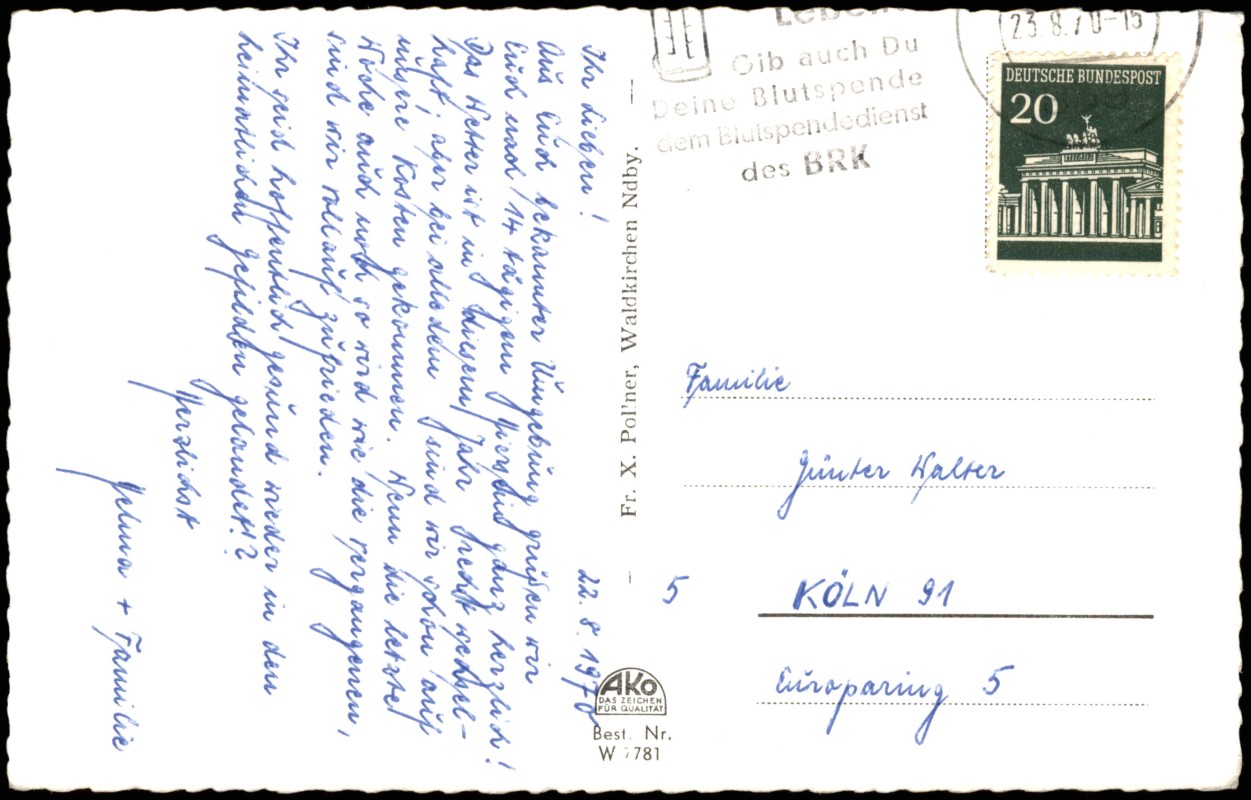 22. 8. 1970
Ihr Lieben!
Aus Euch bekannter Umgebung grüßen wir
Euch nach 14 tägigem Hiersein ganz herzlich!
Das Wetter ist in diesem Jahr recht wechsel-
haft, aber bei alledem sind wir schon auf
unsere Kosten gekommen. Wenn die letzte
Woche auch noch so wird wie die vergangenen,
sind wir vollauf zufrieden.
Ihr seid hoffentlich gesund wieder in den
heimatlichen Gefilden gelandet!?
Herzlichst
Helma + Familie
Fr. X. Pollner, Waldkirchen Ndby.
AKO
DAS ZEICHEN
FÜR QUALITÄT
Best. Nr.
W 7781
Gib auch Du
Deine Blutspende
dem Blutspendedienst
des BRK
23.8.70-15
DEUTSCHE BUNDESPOST
20
Familie
Günter Walter
5 KÖLN 91
Europaring 5